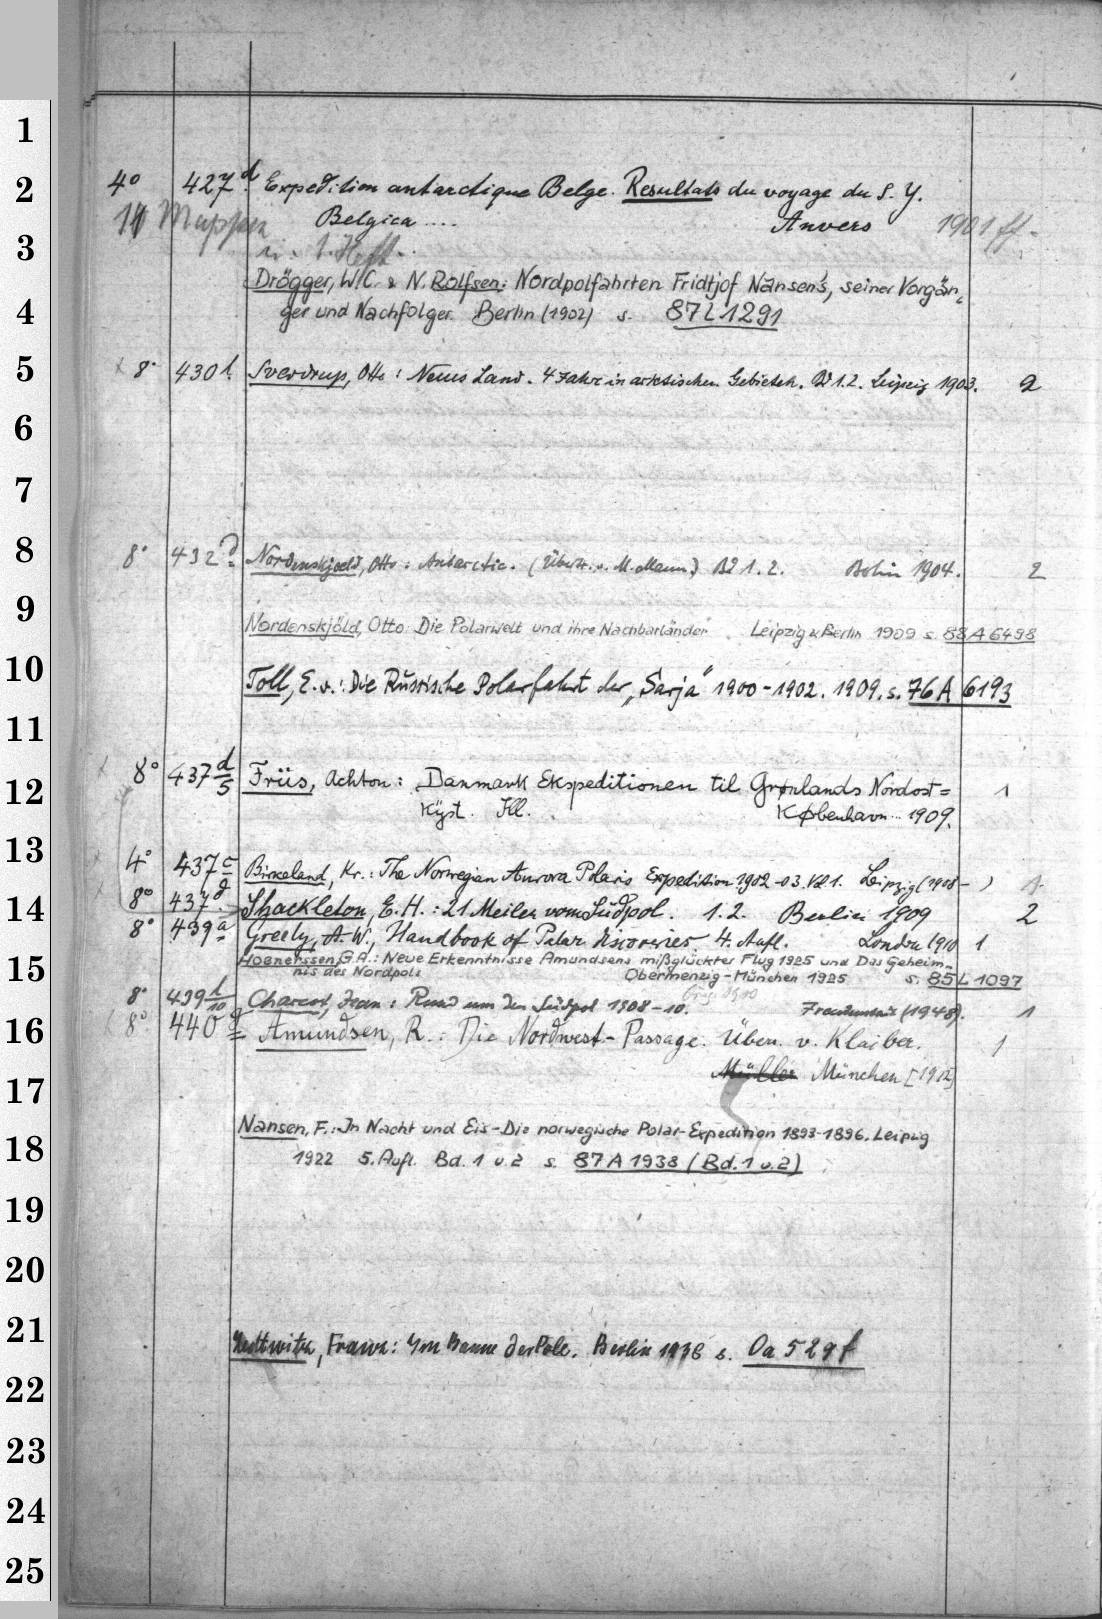 4° 427d. Expedition antarctique Belge. Resultats du voyage du S. Y.
Belgica .... Anvers 1901 ff.
11 Mappen
u. 1. Heft.
Drögger, W.C. & N. Rolfsen: Nordpolfahrten Fridtjof Nansen's, seiner Vorgän-
ger und Nachfolger. Berlin (1902) s. 87 L 1291
8° 430 l. Sverdrup, Otto: Neues Land. 4 Jahre in arktischen Gebieten. Bd 1.2. Leipzig 1903. 2
8° 432 d. Nordenskjoeld, Otto: Antarctic. (Übers. v. M. Mann) Bd 1. 2. Berlin 1904. 2
Nordenskjöld, Otto: Die Polarwelt und ihre Nachbarländer. Leipzig & Berlin 1909 s. 88 A 6498
Toll, E. v.: Die Russische Polarfahrt der „Sarja" 1900-1902. 1909. s. 76 A 6193
8° 437 d/5 Friis, Achton: Danmark Ekspeditionen til Grønlands Nordost=
Kyst. Ill. København 1909. 1
4° 437 c Birkeland, Kr.: The Norwegian Aurora Polaris Expedition 1902-03. Vol 1. Leipzig (1908- ) 1
8° 437 g. Shackleton, E. H.: 21 Meilen vom Südpol. 1. 2. Berlin 1909 2
8° 439 a Greely, A. W., Handbook of Polar discoveries. 4. Aufl. London 1910 1
Hoenerssen, G.A.: Neue Erkenntnisse Amundsens mißglückter Flug 1925 und Das Geheim-
nis des Nordpols Obermenzig-München 1925 s. 85 L 1097
8° 439 l/10 Charcot, Jean: Rund um den Südpol 1908-10. (1948). 1
8° 440 Amundsen, R.: Die Nordwest-Passage. Übers. v. Klaiber.
Müller München [1912] 1
Nansen, F.: In Nacht und Eis-Die norwegische Polar-Expedition 1893-1896. Leipzig
1922 5. Aufl. Bd. 1 u. 2 s. 87 A 1938 (Bd. 1 u. 2)
Frank: Im Banne der Pole. Berlin 1936 s. Oa 529 f